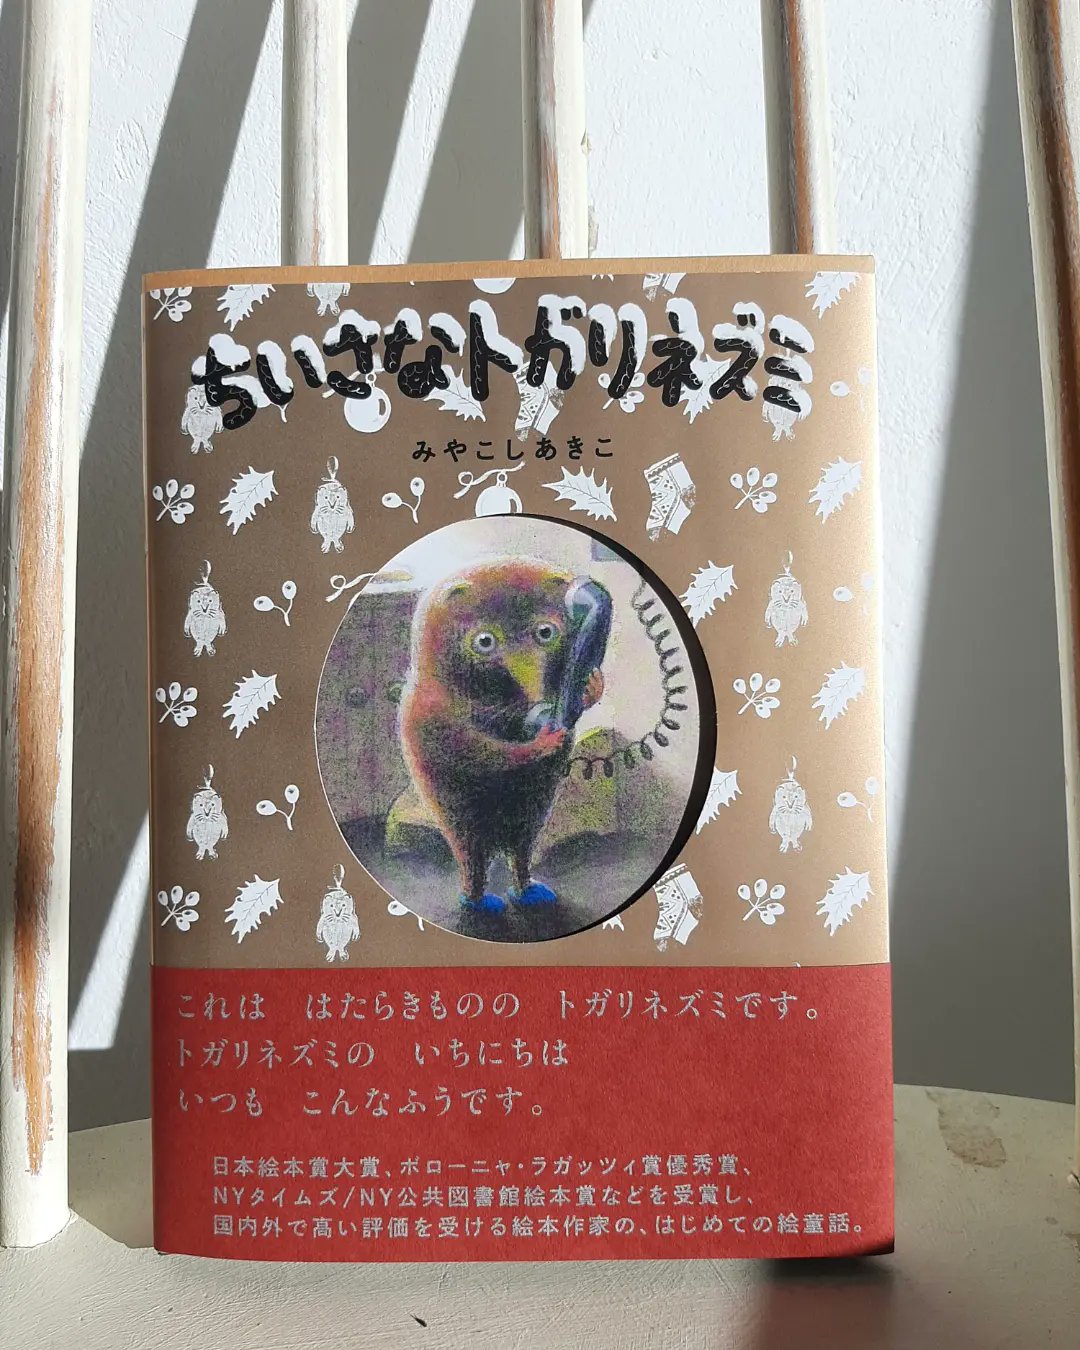 ちいさなトガリネズミ
みやこしあきこ
これは　はたらきものの　トガリネズミです。
トガリネズミの　いちにちは
いつも　こんなふうです。
日本絵本賞大賞、ボローニャ・ラガッツィ賞優秀賞、
NYタイムズ/NY公共図書館絵本賞などを受賞し、
国内外で高い評価を受ける絵本作家の、はじめての絵童話。